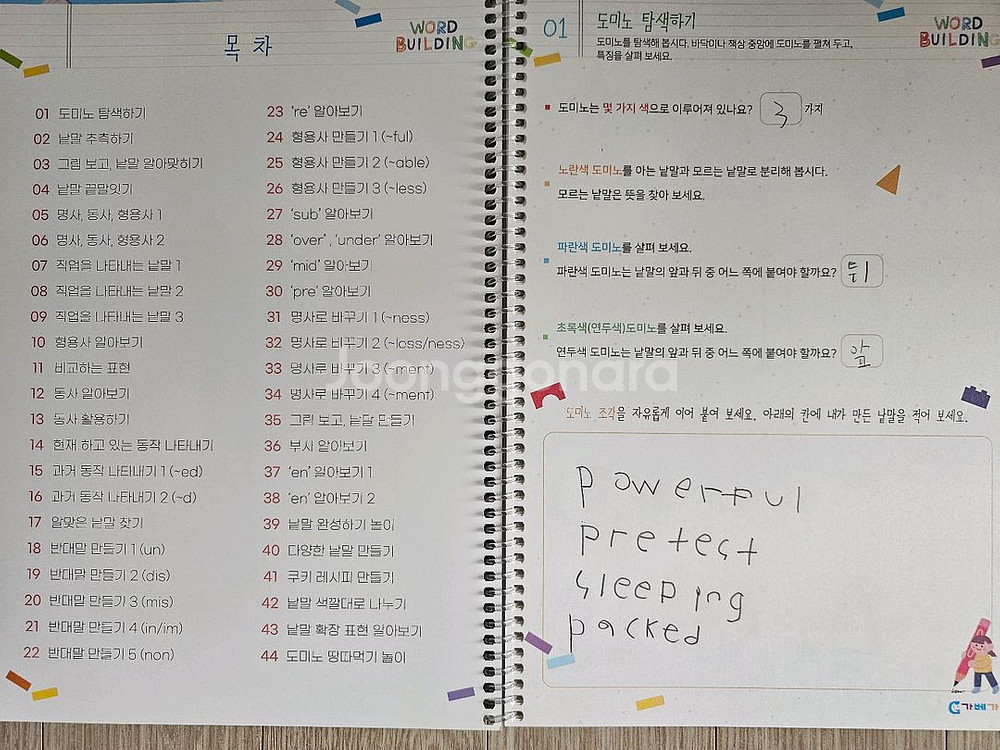 목 차
WORD
BUILDING
01 도미노 탐색하기
02 낱말 추측하기
03 그림 보고, 낱말 알아맞히기
04 낱말 끝말잇기
05 명사, 동사, 형용사 1
06 명사, 동사, 형용사 2
07 직업을 나타내는 낱말 1
08 직업을 나타내는 낱말 2
09 직업을 나타내는 낱말 3
10 형용사 알아보기
11 비교하는 표현
12 동사 알아보기
13 동사 활용하기
14 현재 하고 있는 동작 나타내기
15 과거 동작 나타내기 1 (~ed)
16 과거 동작 나타내기 2 (~d)
17 알맞은 낱말 찾기
18 반대말 만들기 1 (un)
19 반대말 만들기 2 (dis)
20 반대말 만들기 3 (mis)
21 반대말 만들기 4 (in/im)
22 반대말 만들기 5 (non)
23 ‘re’ 알아보기
24 형용사 만들기 1 (~ful)
25 형용사 만들기 2 (~able)
26 형용사 만들기 3 (~less)
27 ‘sub’ 알아보기
28 ‘over’ , ‘under’ 알아보기
29 ‘mid’ 알아보기
30 ‘pre’ 알아보기
31 명사로 바꾸기 1 (~ness)
32 명사로 바꾸기 2 (~loss/ness)
33 명사로 바꾸기 3 (~ment)
34 명사로 바꾸기 4 (~ment)
35 그림 보고, 낱말 만들기
36 부사 알아보기
37 ‘en’ 알아보기 1
38 ‘en’ 알아보기 2
39 낱말 완성하기 놀이
40 다양한 낱말 만들기
41 쿠키 레시피 만들기
42 낱말 색깔대로 나누기
43 낱말 확장 표현 알아보기
44 도미노 땅따먹기 놀이
01 도미노 탐색하기
도미노를 탐색해 봅시다. 바닥이나 책상 중앙에 도미노를 펼쳐 두고,
특징을 살펴 보세요.
WORD
BUILDING
도미노는 몇 가지 색으로 이루어져 있나요? 3 가지
노란색 도미노를 아는 낱말과 모르는 낱말로 분리해 봅시다.
모르는 낱말은 뜻을 찾아 보세요.
파란색 도미노를 살펴 보세요.
파란색 도미노는 낱말의 앞과 뒤 중 어느 쪽에 붙여야 할까요? 뒤
초록색(연두색)도미노를 살펴 보세요.
연두색 도미노는 낱말의 앞과 뒤 중 어느 쪽에 붙여야 할까요? 앞
도미노 조각을 자유롭게 이어 붙여 보세요. 아래의 칸에 내가 만든 낱말을 적어 보세요.
powerful
pretest
sleeping
packed
가베가
Joongoonara